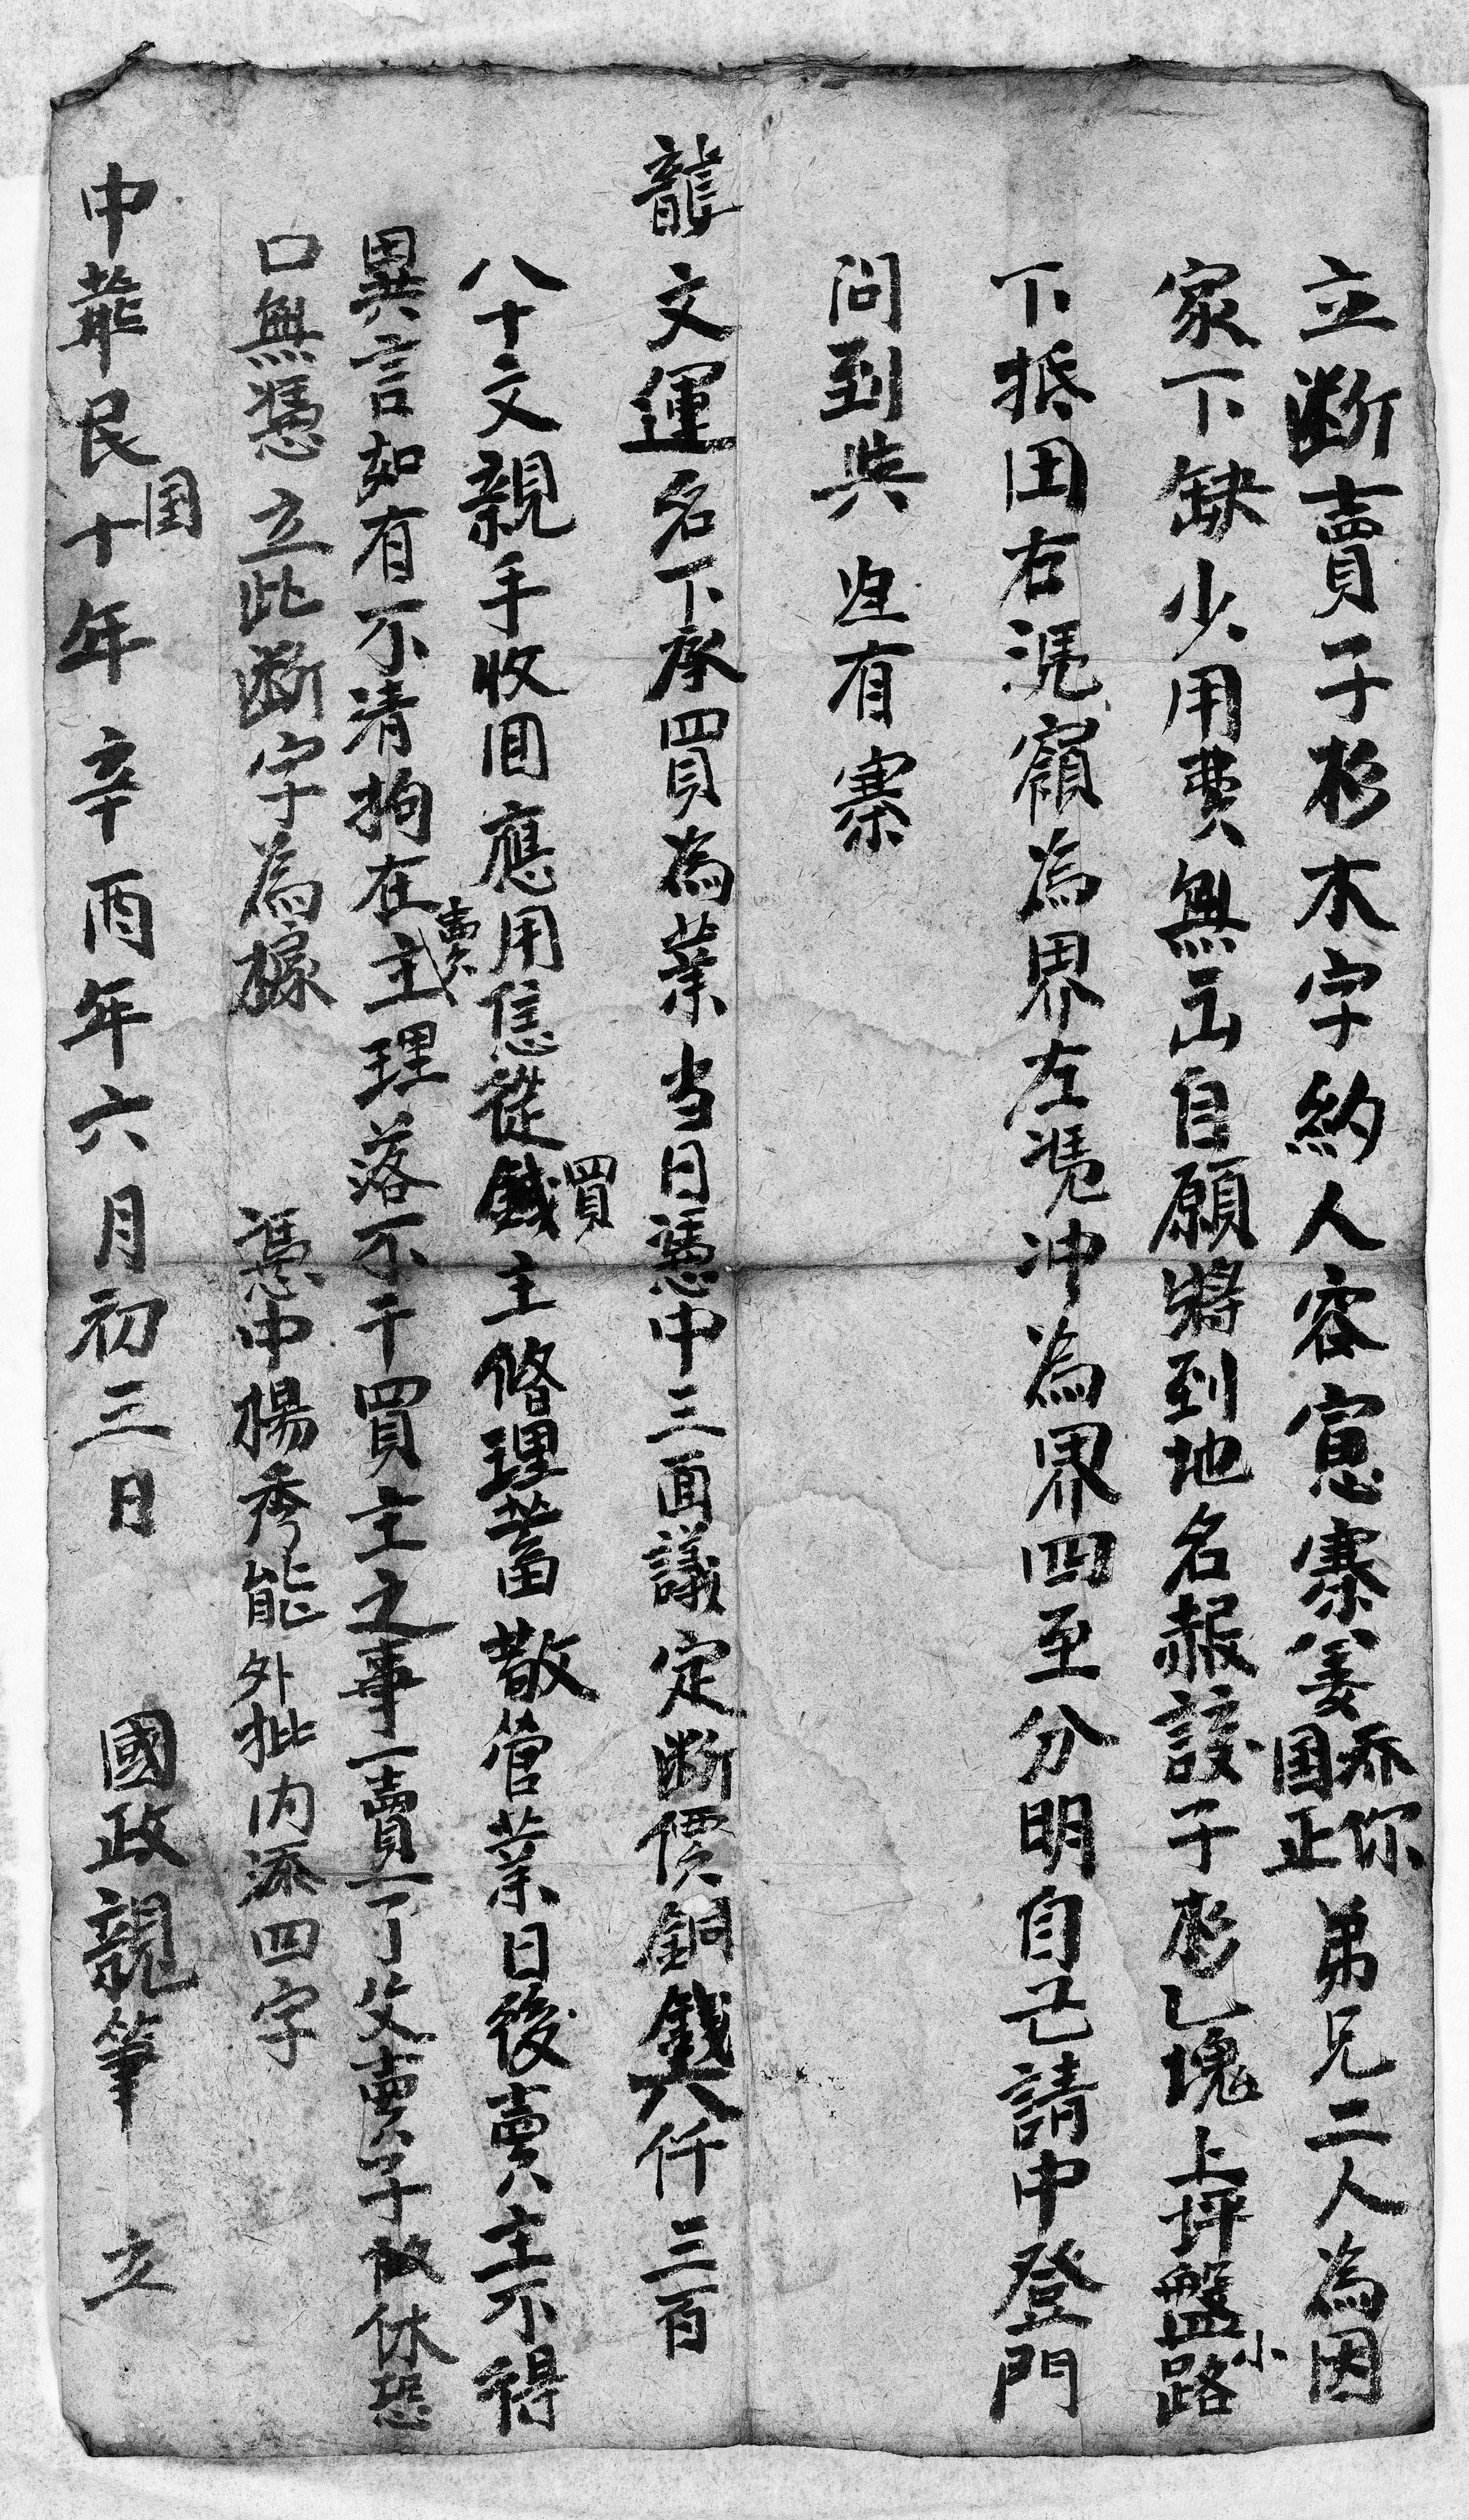 立断賣子杉木字約人容寭寨姜乔你国正弟兄二人為因
家下缺少用費無云自願將到地名赧該子杉乙塊上坪盤小路
下抵田右凴嶺為界左凴冲為界四至分明自己請中登門
問到與迬有寨
龍文運名下承買為業当日憑中三面議定断價銅錢六仟三百
八十文親手收回應用恁從買主修理蓄散管業日後賣主不得
異言如有不清拘在賣主理落不干買主之事一賣一了父賣子休恐
口無憑立此断字為櫞　憑中楊秀能　外批内添四字
中華民国十年辛酉年六月初三日　國政親筆　立